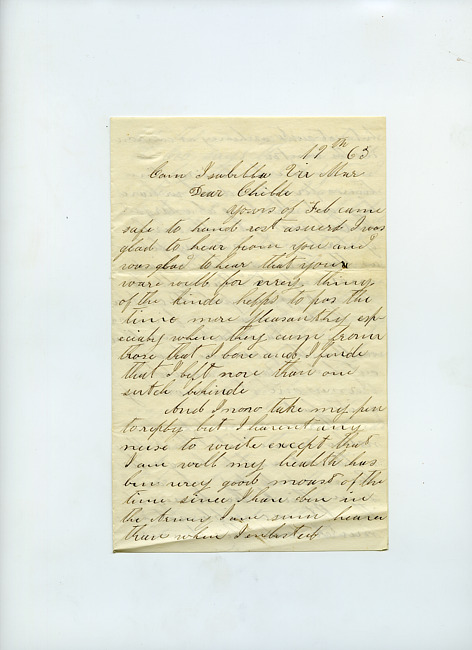 19th 63
Cam Isabella Vir Mar
Dear Childe
Yours of Feb came
safe to hand rest asured I was
glad to hear from you and
was glad to hear that your
ware well for every thing
of the kinde helps to pas the
time more pleasantly esp
ecialy when they cum from
those that I love and I finde
that I left more than one
sutch behinde
And I now take my pen
to reply but I havent any
nuse to write except that
I am well my health has
bin very good moast of the
time since I have ben in
the Armey I am sum hevea
than when I enlisted